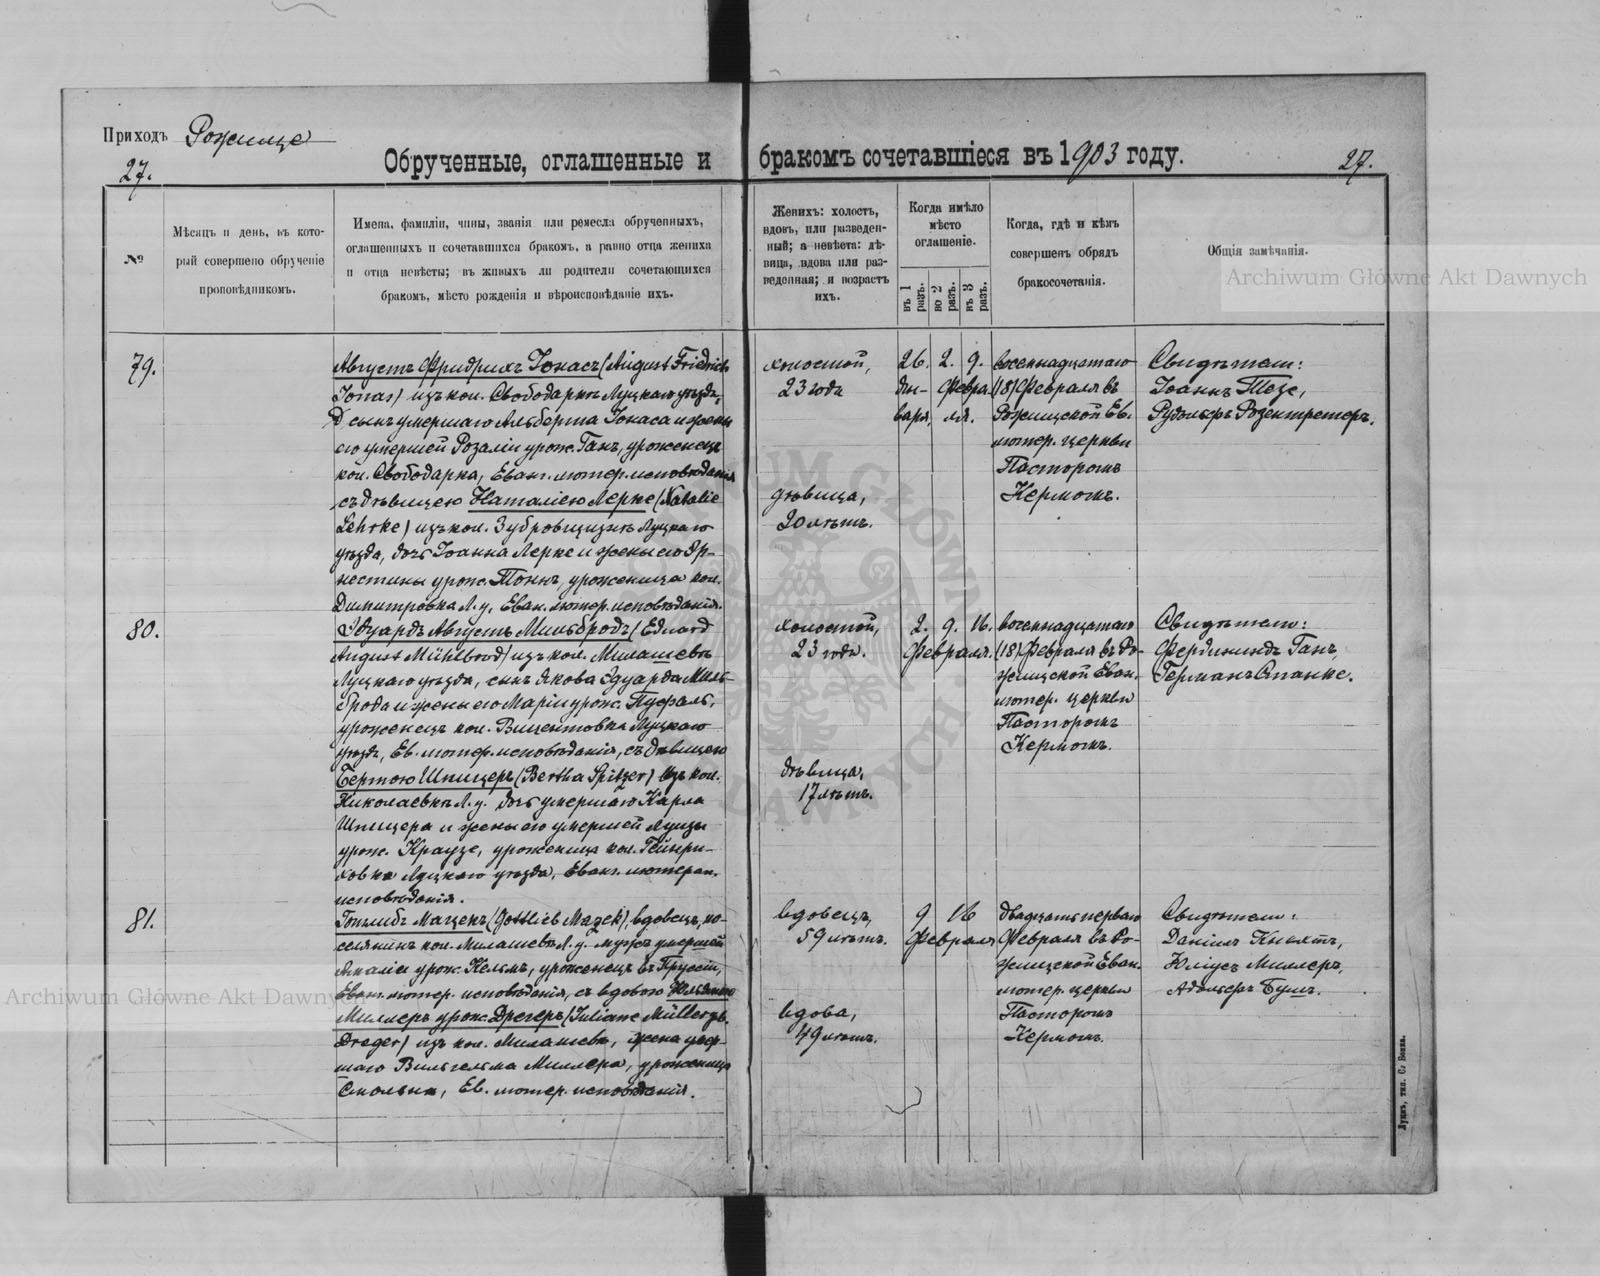 Приходъ Рожище
27.
Обрученные, оглашенные и бракомъ сочетавшіеся въ 1903 году.
27.
№
Мѣсяцъ и день, въ кото-
рый совершено обрученіе
проповѣдникомъ.
Имена, фамиліи, чины, званія или ремесла обрученныхъ,
оглашенныхъ и сочетавшихся бракомъ, а равно отца жениха
и отца невѣсты; въ живыхъ ли родители сочетающихся
бракомъ, мѣсто рожденія и вѣроисповѣданіе ихъ.
Женихъ: холостъ,
вдовъ, или разведен-
ный; а невѣста: дѣ-
вица, вдова или раз-
веденная; и возрастъ
ихъ.
Когда имѣло
мѣсто
оглашеніе.
въ 1 разъ.
во 2 разъ.
въ 3 разъ.
Когда, гдѣ и кѣмъ
совершенъ обрядъ
бракосочетанія.
Общія замѣчанія.
Archiwum Główne Akt Dawnych
79.
Августъ Фридрихъ Іонасъ (August Friedrich
Jonas) изъ кол. Свободарка Луцкаго уѣзда,
сынъ умершаго Альберта Іонаса и жены
его умершей Розаліи урож. Ганъ, уроженецъ
кол. Свободарка, Еванг. лютер. исповѣданія
съ дѣвицею Наталіею Лерке (Natalie
Lehrke) изъ кол. Зубровщизнъ Луцкаго
уѣзда, дочь Іоанна Лерке и жены его Эр-
нестины урож. Тоннъ, уроженица кол.
Димитровка Л. у., Еван. лютер. исповѣданія.
холостой,
23 года
дѣвица,
20 лѣтъ.
26. 2. 9.
Ян- Февра-
варя, ля.
восемнадцатаго
(18) Февраля въ
Рожищской Ев.
лютер. церкви
Пасторомъ
Кермомъ.
Свидѣтели:
Іоаннъ Тезе,
Рудольфъ Розентретеръ.
80.
Эдуардъ Августъ Мильбродъ (Eduard
August Mühlbrod) изъ кол. Милашевъ
Луцкаго уѣзда, сынъ Якова Эдуарда Миль-
брода и жены его Маріи урож. Пуфаль,
уроженецъ кол. Вицентовка Луцкаго
уѣзда, Ев. лютер. исповѣданія, съ дѣвицею
Бертою Шпицеръ (Bertha Spitzer) изъ кол.
Николаевка Л. у. дочь умершаго Карла
Шпицера и жены его умершей Луизы
урож. Краузе, уроженица кол. Гейнри-
ховка Луцкаго уѣзда, Еванг. лютеран.
исповѣданія.
холостой,
23 года.
дѣвица,
17 лѣтъ.
2. 9. 16.
Февраля.
восемнадцатаго
(18) Февраля въ Ро-
жищской Еван.
лютер. церкви
Пасторомъ
Кермомъ.
Свидѣтели:
Фердинандъ Ганъ,
Германъ Станке.
81.
Готлибъ Мацекъ (Gottlieb Mazek), вдовецъ, по-
селянинъ кол. Милашевъ Л. у. мужъ умершей
Амаліи урож. Кельмъ, уроженецъ въ Пруссіи,
Еван. лютер. исповѣданія, съ вдовою Юліаною
Миллеръ урож. Дрегеръ (Juliane Müller geb.
Dreger) изъ кол. Милашевъ, жена умер-
шаго Вильгельма Миллера, уроженица
Ев. лютер. исповѣданія.
вдовецъ,
59 лѣтъ.
вдова,
49 лѣтъ.
9 16
Февраля
двадцать перваго
Февраля въ Ро-
жищской Еван.
лютер. церкви
Пасторомъ
Кермомъ.
Свидѣтели:
Даніилъ Кнехтъ,
Юліусъ Миллеръ,
Адольфъ Бушъ.
Archiwum Główne Akt Dawnych